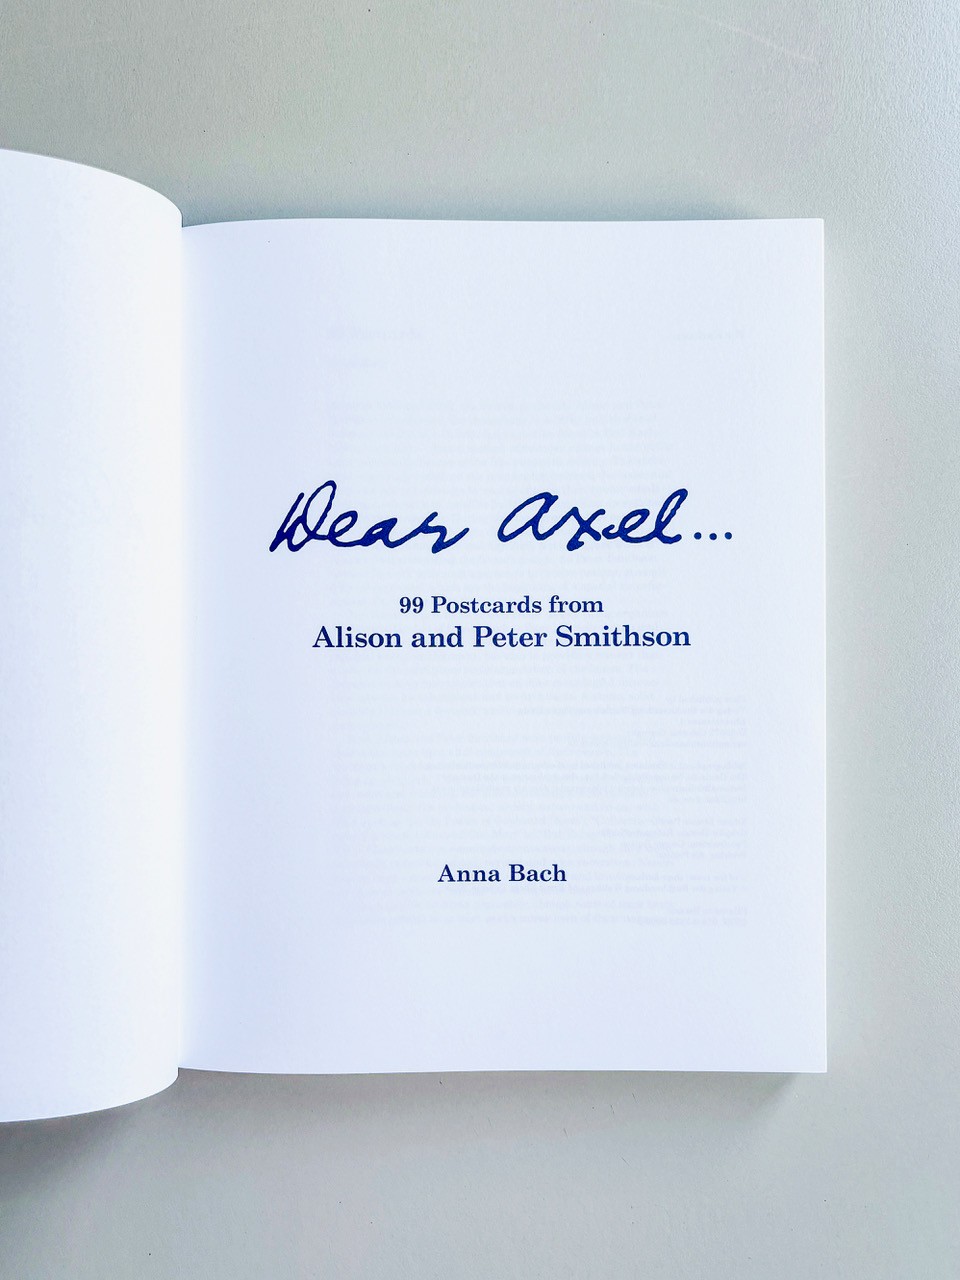 Dear Axel...
99 Postcards from
Alison and Peter Smithson
Anna Bach